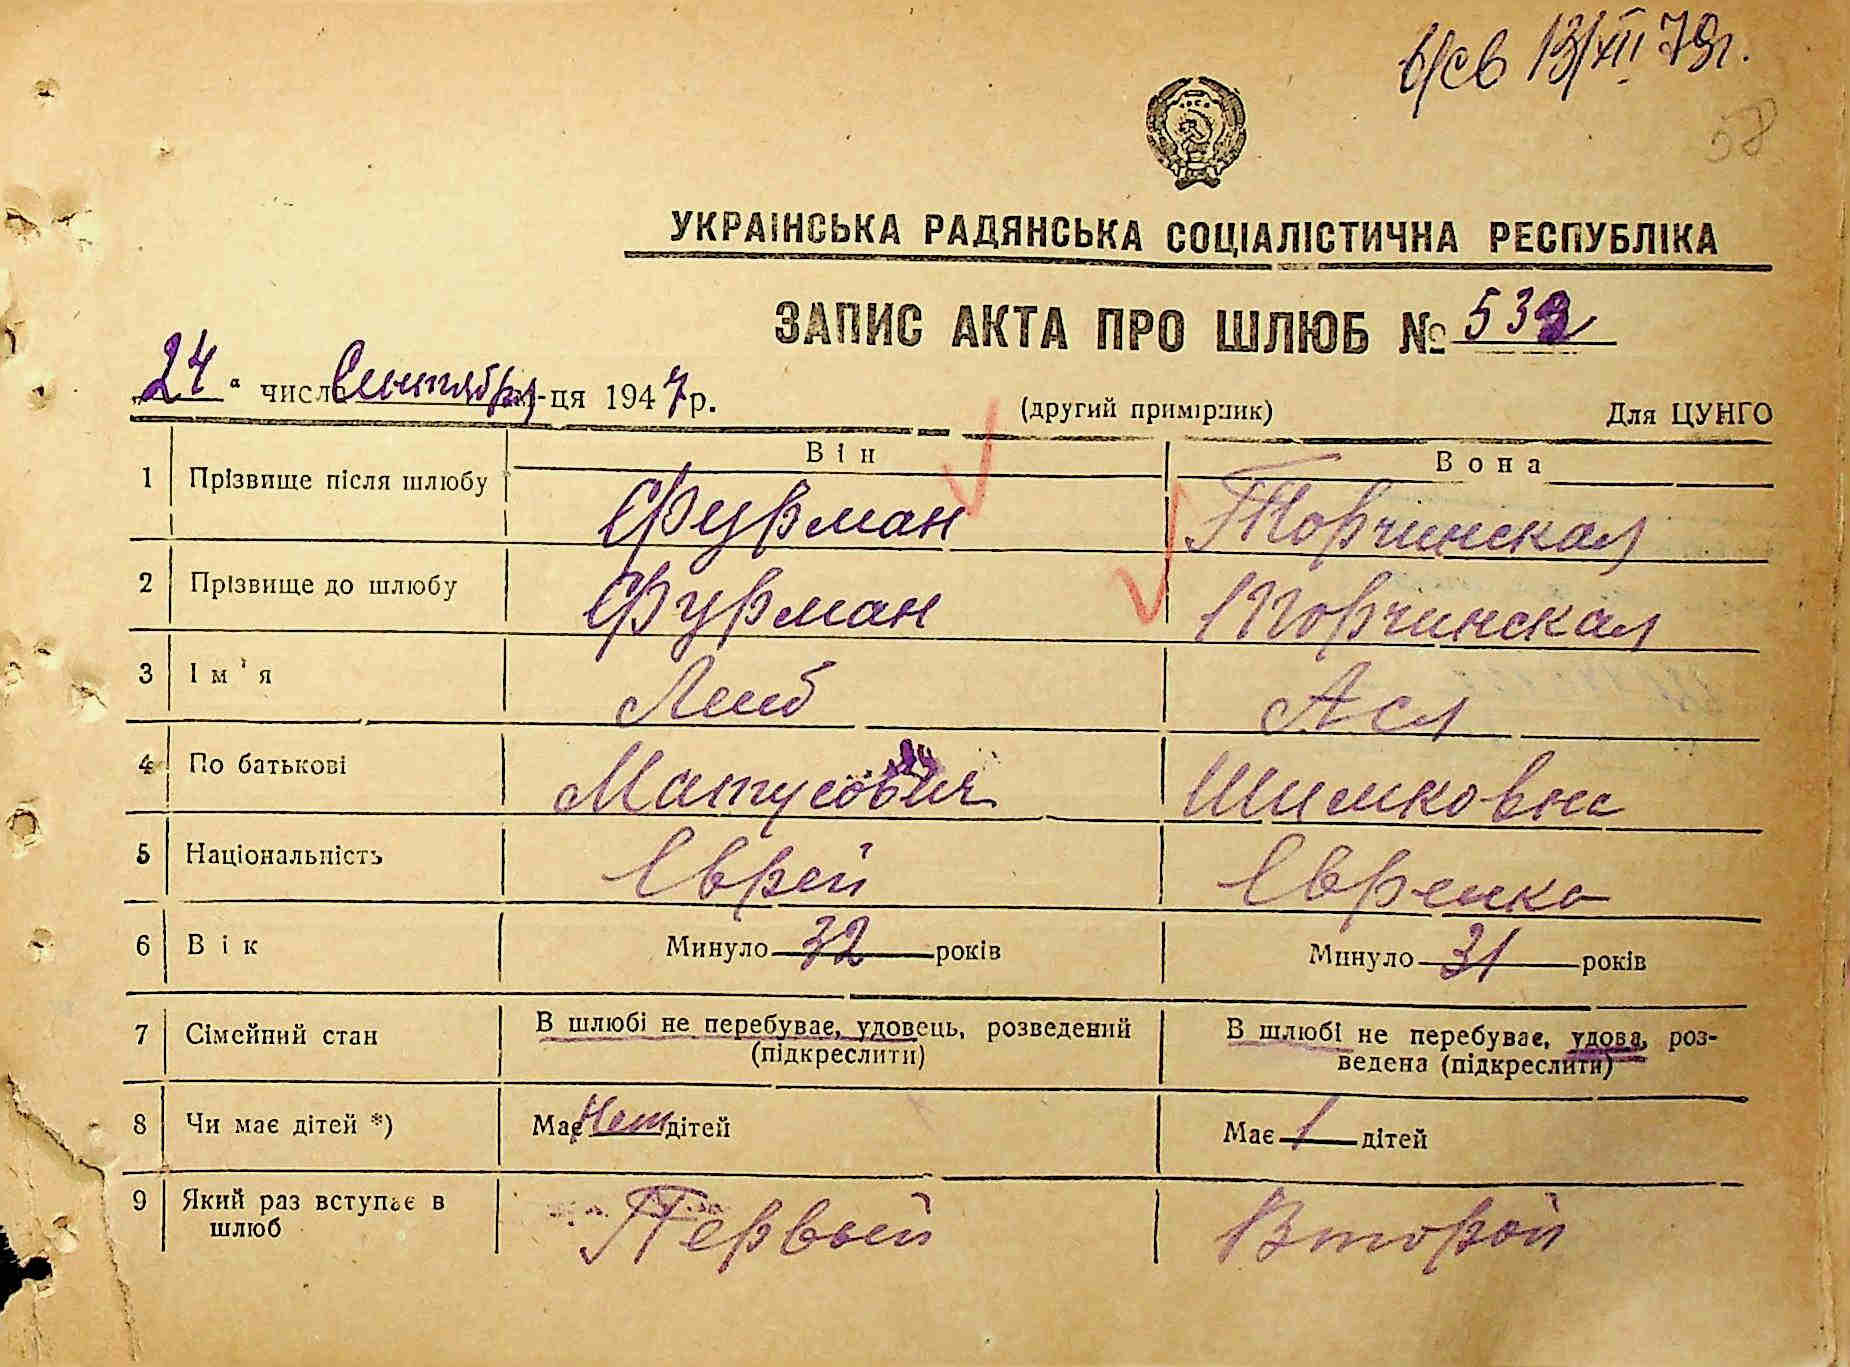 в/св 13/XII 79г.
58
УКРАЇНСЬКА РАДЯНСЬКА СОЦІАЛІСТИЧНА РЕСПУБЛІКА
ЗАПИС АКТА ПРО ШЛЮБ № 532
„24" число Сентября м-ця 1947 р.
(другий примірник) Для ЦУНГО
Він Вона
1 Прізвище після шлюбу Фурман Торчинская
2 Прізвище до шлюбу Фурман Торчинская
3 Ім'я Лейб Ася
4 По батькові Матусович Шимковна
5 Національність Еврей Еврейка
6 Вік Минуло 32 років Минуло 31 років
7 Сімейний стан В шлюбі не перебуває, удовець, розведений (підкреслити) В шлюбі не перебуває, удова, роз-
ведена (підкреслити)
8 Чи має дітей *) Має Нет дітей Має 1 дітей
9 Який раз вступає в шлюб Первый Второй